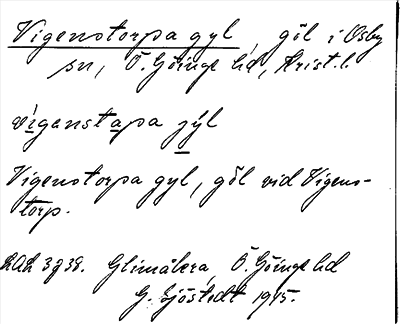 Vigenstorpa gyl, göl i Osby
sn, Ö. Göinge hd, Krist. l.
vigenstapa jýl
Vigenstorpa gyl, göl vid Vigens-
torp.
Glimåkra, Ö. Göinge hd
G. Sjöstedt 1945.